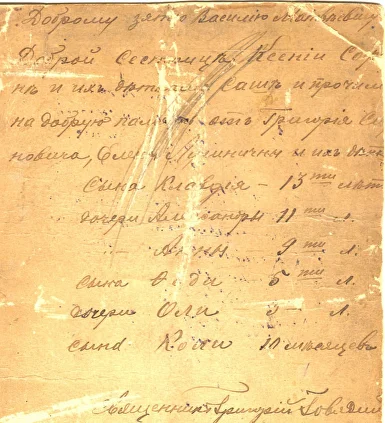 Доброму зятю Василію Матвѣевичу
Доброй Сестрицѣ Ксеніи Сер
нѣ и ихъ дѣтямъ Сашѣ и прочим
на добрую память отъ Григорія Си
новича, и ихъ дѣте
Сына Клавдія – 13 ти лѣтъ
дочери Александры 11 ти л.
– Анны 9 ти л.
сына Феди 5 ти л.
дочери Оли 3 – л.
сына Коли 10 мѣсяцевъ
Священникъ Григорій